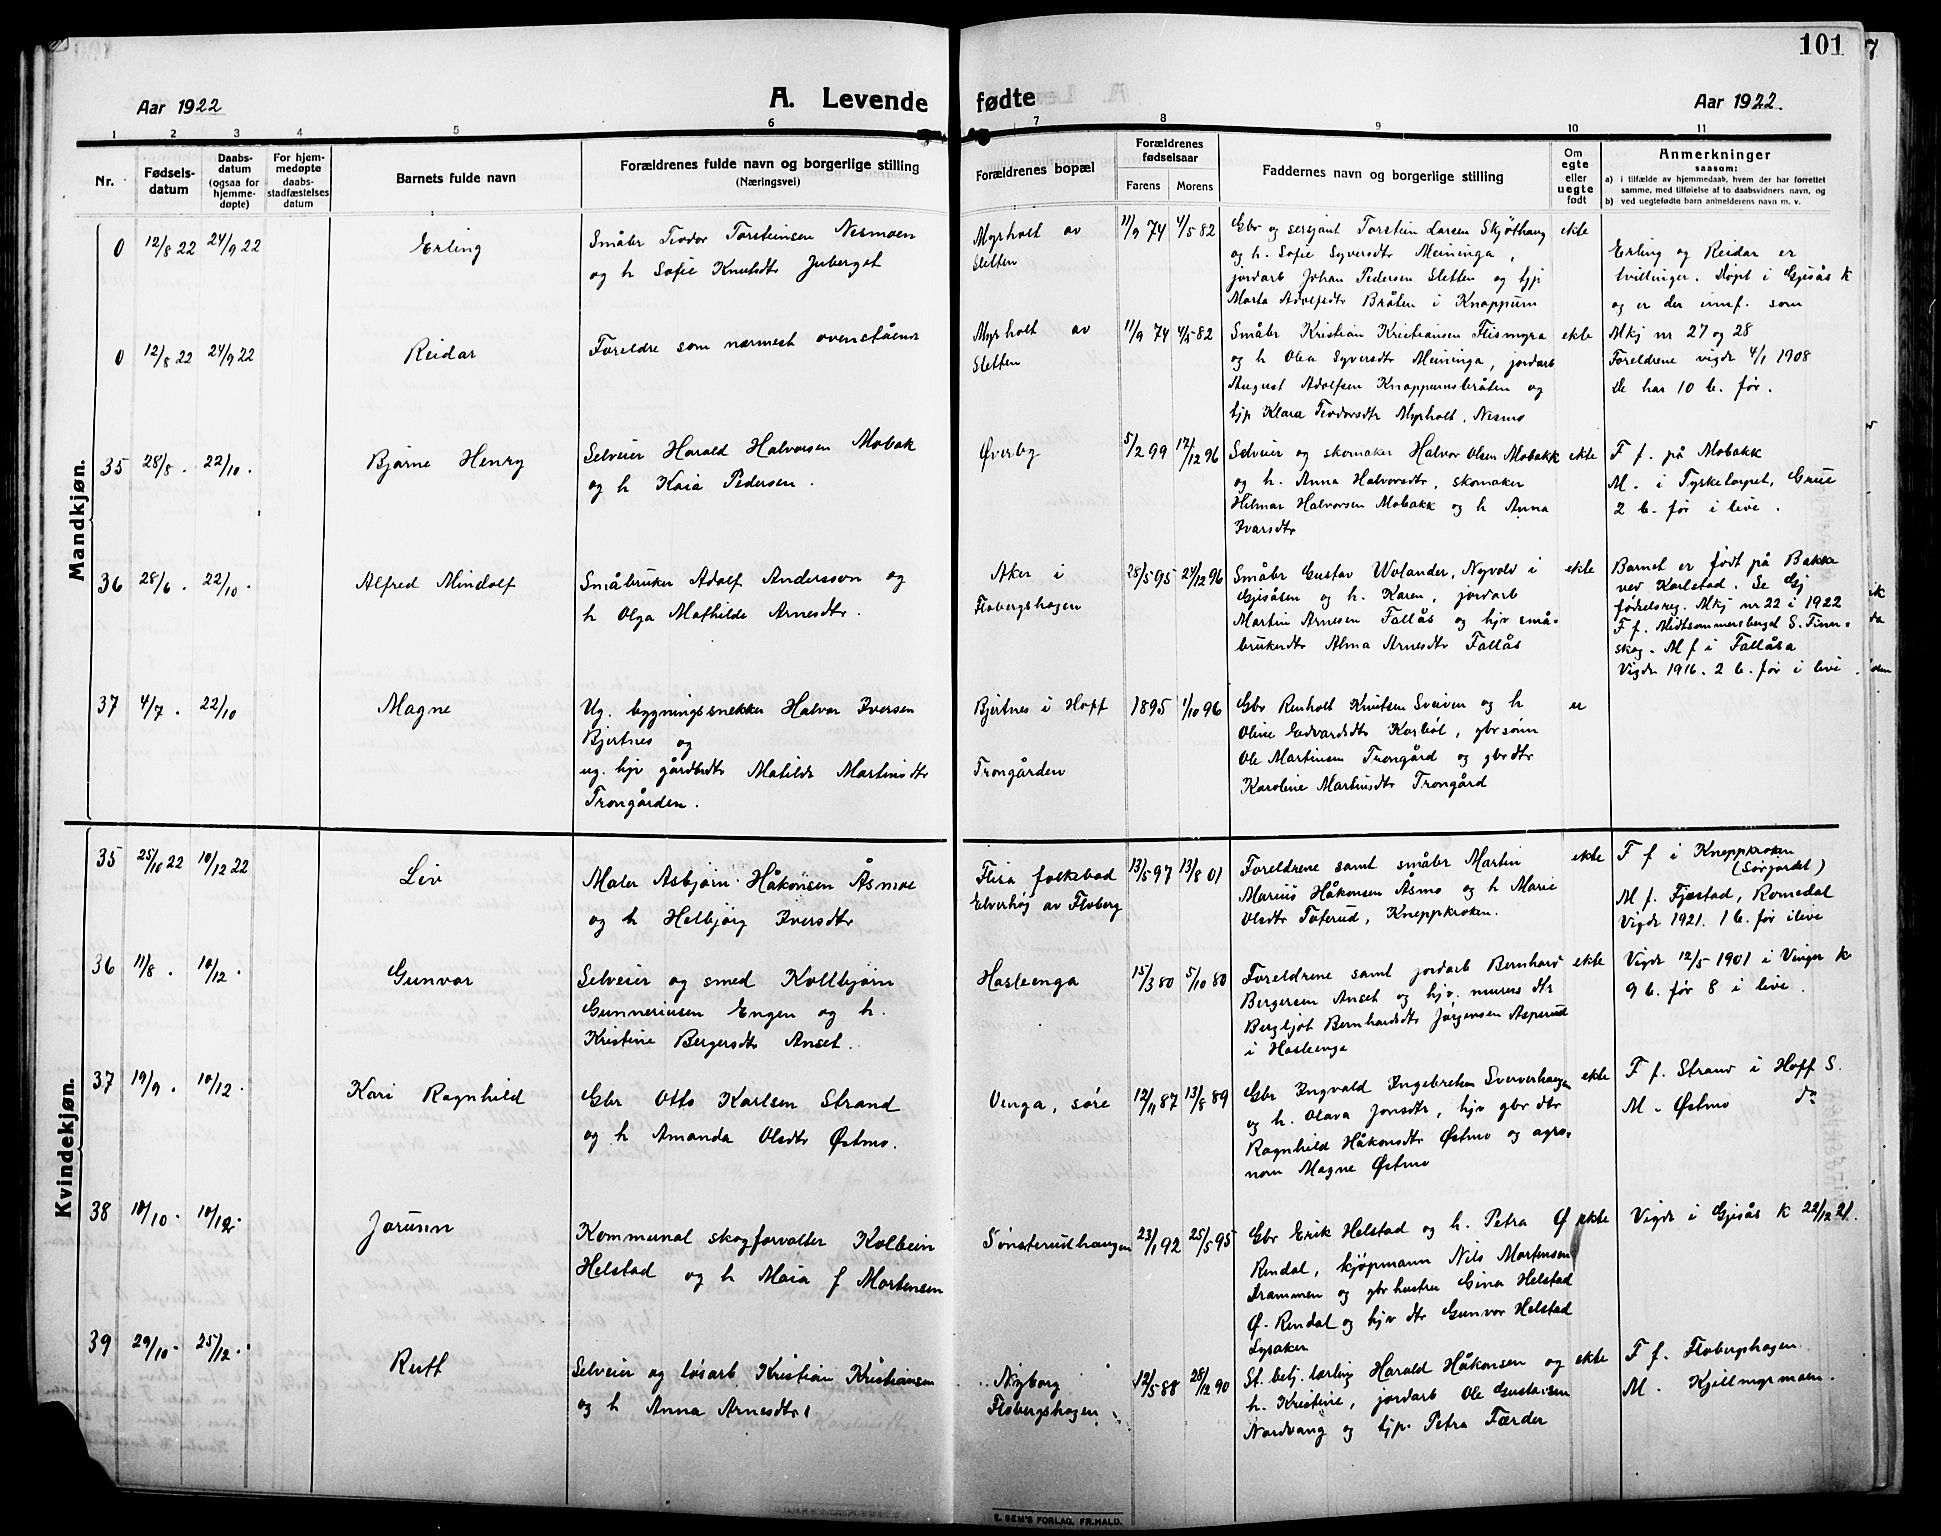 101
Aar 1922
A. Levende
fødte
Aar 1922.
1 2 3 4 5 6 7 8 9 10 11
Nr.
Fødsels-
datum
Daabs-
datum
(ogsaa for
hjemme-
døpte)
For hjem-
medøpte
daabs-
stadfæstelses
datum
Barnets fulde navn
Forældrenes fulde navn og borgerlige stilling
(Næringsvei)
Forældrenes bopæl
Forældrenes
fødselsaar
Farens Morens
Faddernes navn og borgerlige stilling
Om
egte
eller
uegte
født
Anmerkninger
saasom:
a) i tilfælde av hjemmedaab, hvem der har forrettet
samme, med tilføielse af to daabsvidners navn, og
b) ved uegtefødte barn anmelderens navn m. v.
Mandkjøn.
0 12/8 22 24/9 22
Erling
Småbr Teodor Torsteinsen Nesmoen
og h Sofie Knutsdtr Juberget
Myrholt av
Sletten
11/9 74 4/5 82
Gbr og sersjant Torstein Larsen Skjøthaug
og h. Sofie Syversdtr Meininga,
jordarb Johan Pedersen Sletten og tjp
Marta Adolfsdtr Bråten i Knappum
ekte
Erling og Reidar er
tvillinger. Døpt i Gjesås K
og er der innf. som
0 12/8 22 24/9 22
Reidar
Foreldre som nærmest ovenstående
Myrholt av
Sletten
11/9 74 4/5 82
Småbr Kristian Kristiansen Flismyra
og h Olea Syversdtr Meininga, jordarb
August Adolfsen Knappumsbråten og
tjp Klara Teodorsdtr Myrholt. Nesmo
ekte
Mkj nr 27 og 28
Foreldrene vigde 4/1 1908
De har 10 b. før.
35 28/8 . 22/10 .
Bjarne Henry
Selveier Harald Halvorsen Mobak
og h Kaia Pedersen .
Øverby
5/2 99 17/12 96
Selveier og skomaker Halvor Olsen Mobakk
og h. Anna Halvorsdtr, skomaker
Helmar Halvorsen Mobakk og h Anna
Ivarsdtr
ekte
F f. på Mobakk
M. i Tysketorpet, Grue
2 b. før i live .
36 28/6 . 22/10 .
Alfred Mindolf
Småbruker Adolf Andersson og
h Olga Mathilde Arnesdtr.
Aker i
Flobergshagen
28/5 95 24/12 96
Småbr Gustav Wolander, Nyvold i
Gjesåsen og h. Karen, jordarb
Martin Arnesen Fallås og hjv små-
brukerdtr Alma Arnesdtr Fallås
ekte
Barnet er født på Bakke
ved Karlstad. Se Gj
fødselsreg. Mkj nr 22 i 1922
F f. Midtsommersberget S. Finn-
skog. M f i Fallåsa
Vigde 1916. 2 b. før i live .
37 4/7 . 22/10
Magne
Ug. bygningssnekker Halvor Iversen
Bjertnes og
ug. hjv gårdbrdtr Matilde Martinsdtr
Trongården .
Bjertnes i Hoff
Trongården
1895 1/10 96
Gbr Renholt Knutsen Sveiven og h
Oline Edvardsdtr Karbøl, gbrsønn
Ole Martinsen Trongård og gbrdtr
Karoline Martinsdtr Trongård
u
Kvindekjøn.
35 25/10 22 10/12 22
Liv
Maler Asbjørn Håkonsen Åsmoe
og h Helbjørg Iversdtr
Flisa, folkebad
Elverhøy av Floberg
13/5 97 13/8 01
Foreldrene samt småbr Martin
Marius Håkonsen Åsmo og h Marie
Olsdtr Toterud, Kneppkroken.
ekte
F f i Kneppkroken
(Sørjordet)
M f. Fjæstad, Romedal
Vigde 1921. 1 b. før ilive
36 11/8 . 10/12 .
Gunvor
Selveier og smed Kolbjørn
Gunneriusen Engen og h.
Kristine Bergersdtr Anset .
Hasleenga
15/3 80 5/10 80
Foreldrene samt jordarb Bernhard
Bergersen Anset og hjv. murers dtr
Bergljot Bernhardsdtr Jørgensen Asperud
i Hasleenga
ekte
Vigde 12/5 1901 i Vinger K
9 b. før 8 i live .
37 19/9 . 10/12 .
Kari Ragnhild
Gbr Otto Karlsen Strand
og h Amanda Olsdtr Østmo.
Venga, søre
12/11 87 13/8 89
Gbr Ingvald Ingebretsen Sververhaugen
og h. Olava Jonsdtr, hjv gbr dtr
Ragnhild Håkonsdtr Østmo og agro-
nom Magne Østmo
ekte
F f. Strand i Hoff S.
M - Østmo do
38 10/10 . 10/12 .
Jorunn
Kommunal skogforvalter Kolbein
Helstad og h Maia f Mortensen
Sønsterudhaugen
23/1 92 25/5 95
Gbr Erik Helstad og h. Petra Ø
Rendal, kjøpmann Nils Mortensen
Drammen og gbr hustru Gina Helstad
Ø. Rendal og hjv dtr Gunvor Helstad
Lysaker
ekte
Vigde i Gjesås K 22/12 21.
39 29/10 . 25/12 .
Rutt
Selveier og løsarb Kristian Kristiansen
og h Anna Arnesdtr
Nyborg
Flobergshagen
12/5 88 28/12 90
St. betj. lærling Harald Håkonsen og
h. Kristine, jordarb Ole Gustavsen
Nordvang og tjp. Petra Færder
ekte
F f. Flobergshagen
M. Kjellmyrmoen.
E. SEM'S FORLAG, FR.HALD.